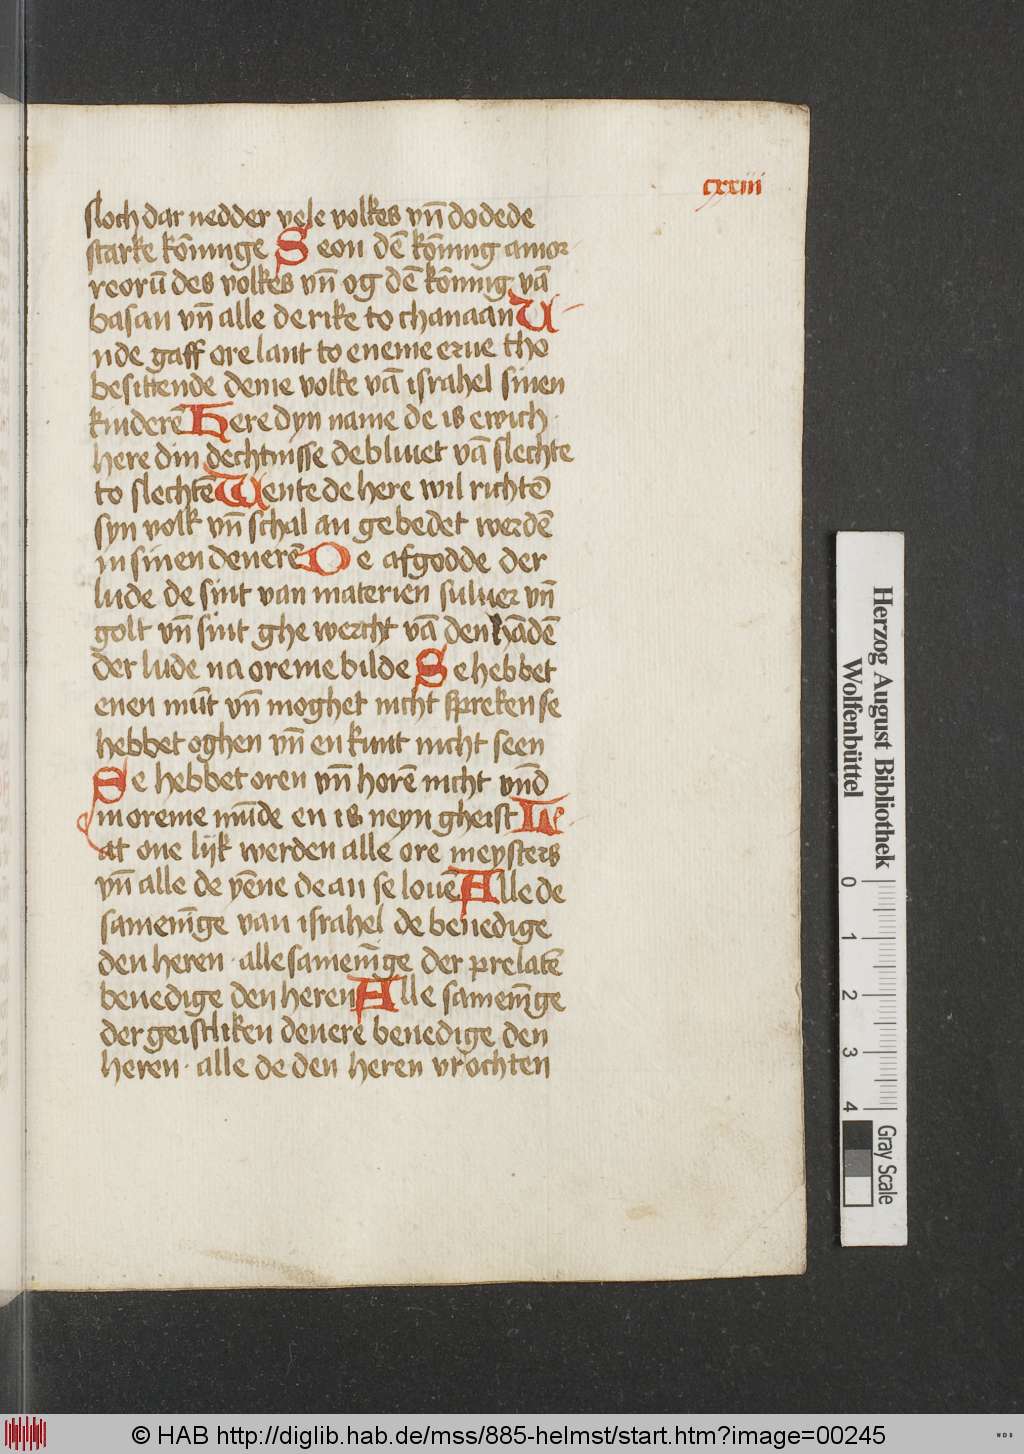 cxxiii
sloch dar nedder vele volkes vn̄ dodede
starke kōninge Seon dē kōning amor
reorū des volkes vn̄ og dē kōning vā
basan vn̄ alle de rike to chanaan U
nde gaff ore lant to eneme erue tho
besittende deme volke vā israhel sinen
kinderē Here dyn name de is ewich
here din dechtnisse de bliuet vā slechte
to slechtē Wente de here wil richtē
syn volk vn̄ schal an gebedet werdē
in sinen denerē De afgodde der
lude de sint van materien suluer vn̄
golt vn̄ sint ghe wercht vā den hādē
der lude na oreme bilde Se hebbet
enen mūt vn̄ moghet nicht spreken se
hebbet oghen vn̄ en kunt nicht seen
Se hebbet oren vn̄ horē nicht vn̄d
in oreme mūde en is neyn gheist W
at one lijk werden alle ore meysters
vn̄ alle de yēne de an se louē Alle de
samenīge van israhel de benedige
den heren · alle samenīge der prelatē
benedige den heren Alle samenīge
der geistliken denere benedige den
heren · alle de den heren vrochten
Herzog August Bibliothek
Wolfenbüttel
0 1 2 3 4
Gray Scale
© HAB http://diglib.hab.de/mss/885-helmst/start.htm?image=00245